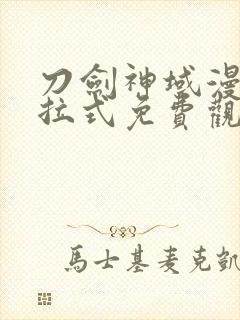 刀劍神域漫
拉式免費觀
馬士基麥克凱